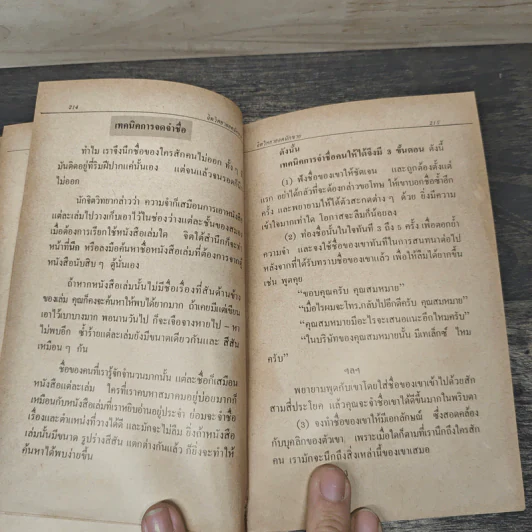 214
เทคนิคการจดจำชื่อ
ทำไม เราจึงนึกชื่อของใครสักคนไม่ออก ทั้ง ๆ
มันติดอยู่ที่ริมฝีปากแค่นั้นเอง แต่จนแล้วจนรอดก็
ไม่ออก
นักจิตวิทยากล่าวว่า ความจำก็เสมือนการเอาหนังสือ
แต่ละเล่มไปวางเก็บเอาไว้ในช่องว่างแต่ละชั้นของสมอง
เมื่อต้องการเรียกใช้หนังสือเล่มใด จิตใต้สำนึกก็จะ
หน้าที่นี้ หรือลงมือค้นหาชื่อหนังสือเล่มที่ต้องการจาก
หนังสือนับสิบ ๆ ตู้นั่นเอง
ถ้าหากหนังสือเล่มนั้นไม่มีชื่อเรื่องที่สันด้านข้าง
ของเล่ม คุณก็คงจะค้นหาให้พบได้ยากมาก ถ้าเคยมีแต่เขียน
เอาไว้บางบางมาก พอนานวันไป ก็จะเจือจางหายไป – หา
ไม่พบอีก ซ้ำร้ายแต่ละเล่มยังมีขนาดเดียวกันและ สีสัน
เหมือน ๆ กัน
ชื่อของคนที่เรารู้จักจำนวนมากนั้น แต่ละชื่อก็เสมือน
หนังสือแต่ละเล่ม ใครที่เราคบหาสมาคมอยู่บ่อยมากก็
เหมือนกับหนังสือเล่มที่เราหยิบอ่านอยู่ประจำ ย่อมจะจำชื่อ
เรื่องและตำแหน่งที่วางได้ดี และมักจะไม่ลืม ยิ่งถ้าหนังสือ
เล่มนั้นมีขนาด รูปร่างสีสัน แตกต่างกันแล้ว ก็ยิ่งจะทำให้
ค้นหาได้พบง่ายขึ้น
215
ดังนั้น
เทคนิคการจำชื่อคนให้ได้จึงมี 3 ขั้นตอน ดังนี้
(1) ฟังชื่อของเขาให้ชัดเจน และถูกต้องตั้งแต่
แรก อย่าได้กลัวที่จะต้องกล่าวขอโทษ ให้เขาบอกชื่อซ้ำอีก
ครั้ง และพยายามให้ได้ตัวสะกดต่าง ๆ ด้วย ยิ่งมีความ
เข้าใจมากเท่าใด โอกาสจะลืมก็น้อยลง
(2) ท่องชื่อนั้นในใจทันที 3 ถึง 5 ครั้ง เพื่อตอกย้ำ
ความจำ และจงใช้ชื่อของเขาทันทีในการสนทนาต่อไป
หลังจากที่ได้รับทราบชื่อของเขาแล้ว เพื่อให้ลืมได้ยากขึ้น
เช่น พูดคุย
"ขอบคุณครับ คุณสมหมาย"
"เมื่อไรผมจะโทร.กลับไปอีกดีครับ คุณสมหมาย"
"คุณสมหมายมีอะไรจะเสนอแนะอีกไหมครับ"
"ในบริษัทของคุณสมหมายนั้น มีเทเล็กซ์ ไหม
ครับ"
ฯลฯ
พยายามพูดกับเขาโดยใส่ชื่อของเขาเข้าไปด้วยสัก
สามสี่ประโยค แล้วคุณจะจำชื่อเขาได้ดีขึ้นมากในพริบตา
(3) จงทำชื่อของเขาให้มีเอกลักษณ์ ซึ่งสอดคล้อง
กับบุคลิกของตัวเขา, เพราะเมื่อใดก็ตามที่เรานึกถึงใครสัก
คน เรามักจะนึกถึงสิ่งเหล่านี้ของเขาเสมอ